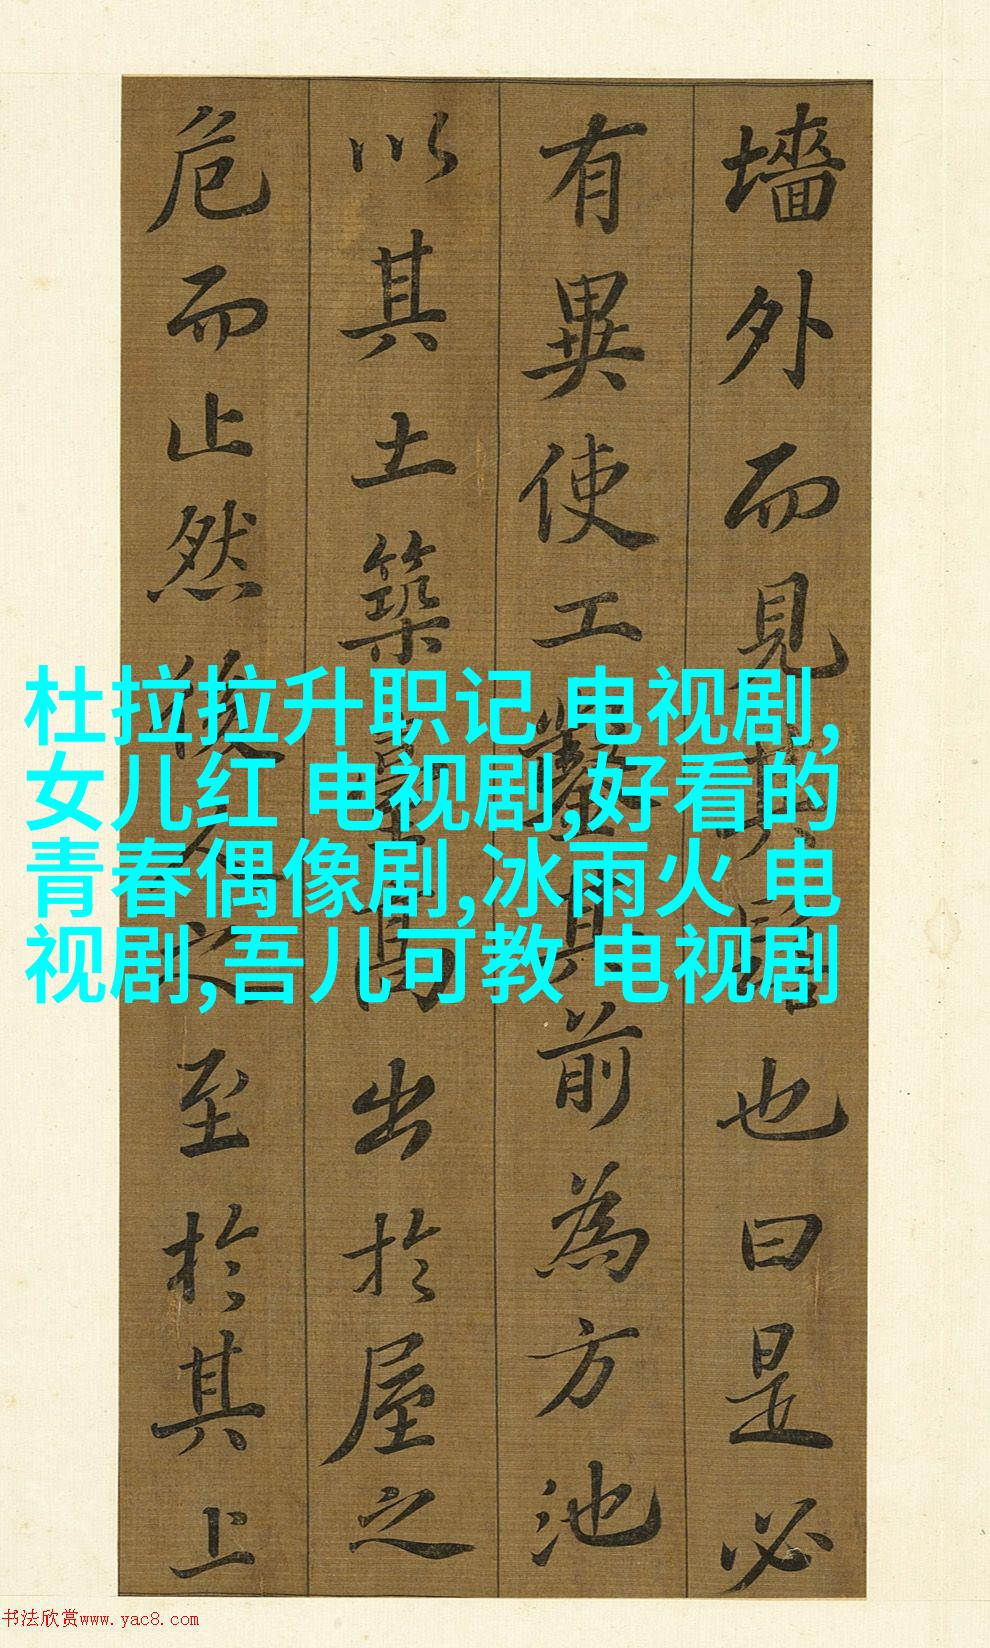 墻外而見其髻也曰是必
有異使工鑿其前為方池
以其土築臺高出於屋之
危而止然後人之至於其上
杜拉拉升职记 电视剧,
女儿红 电视剧,好看的
青春偶像剧,冰雨火 电
视剧,吾儿可教 电视剧
书法欣赏www.yac8.com